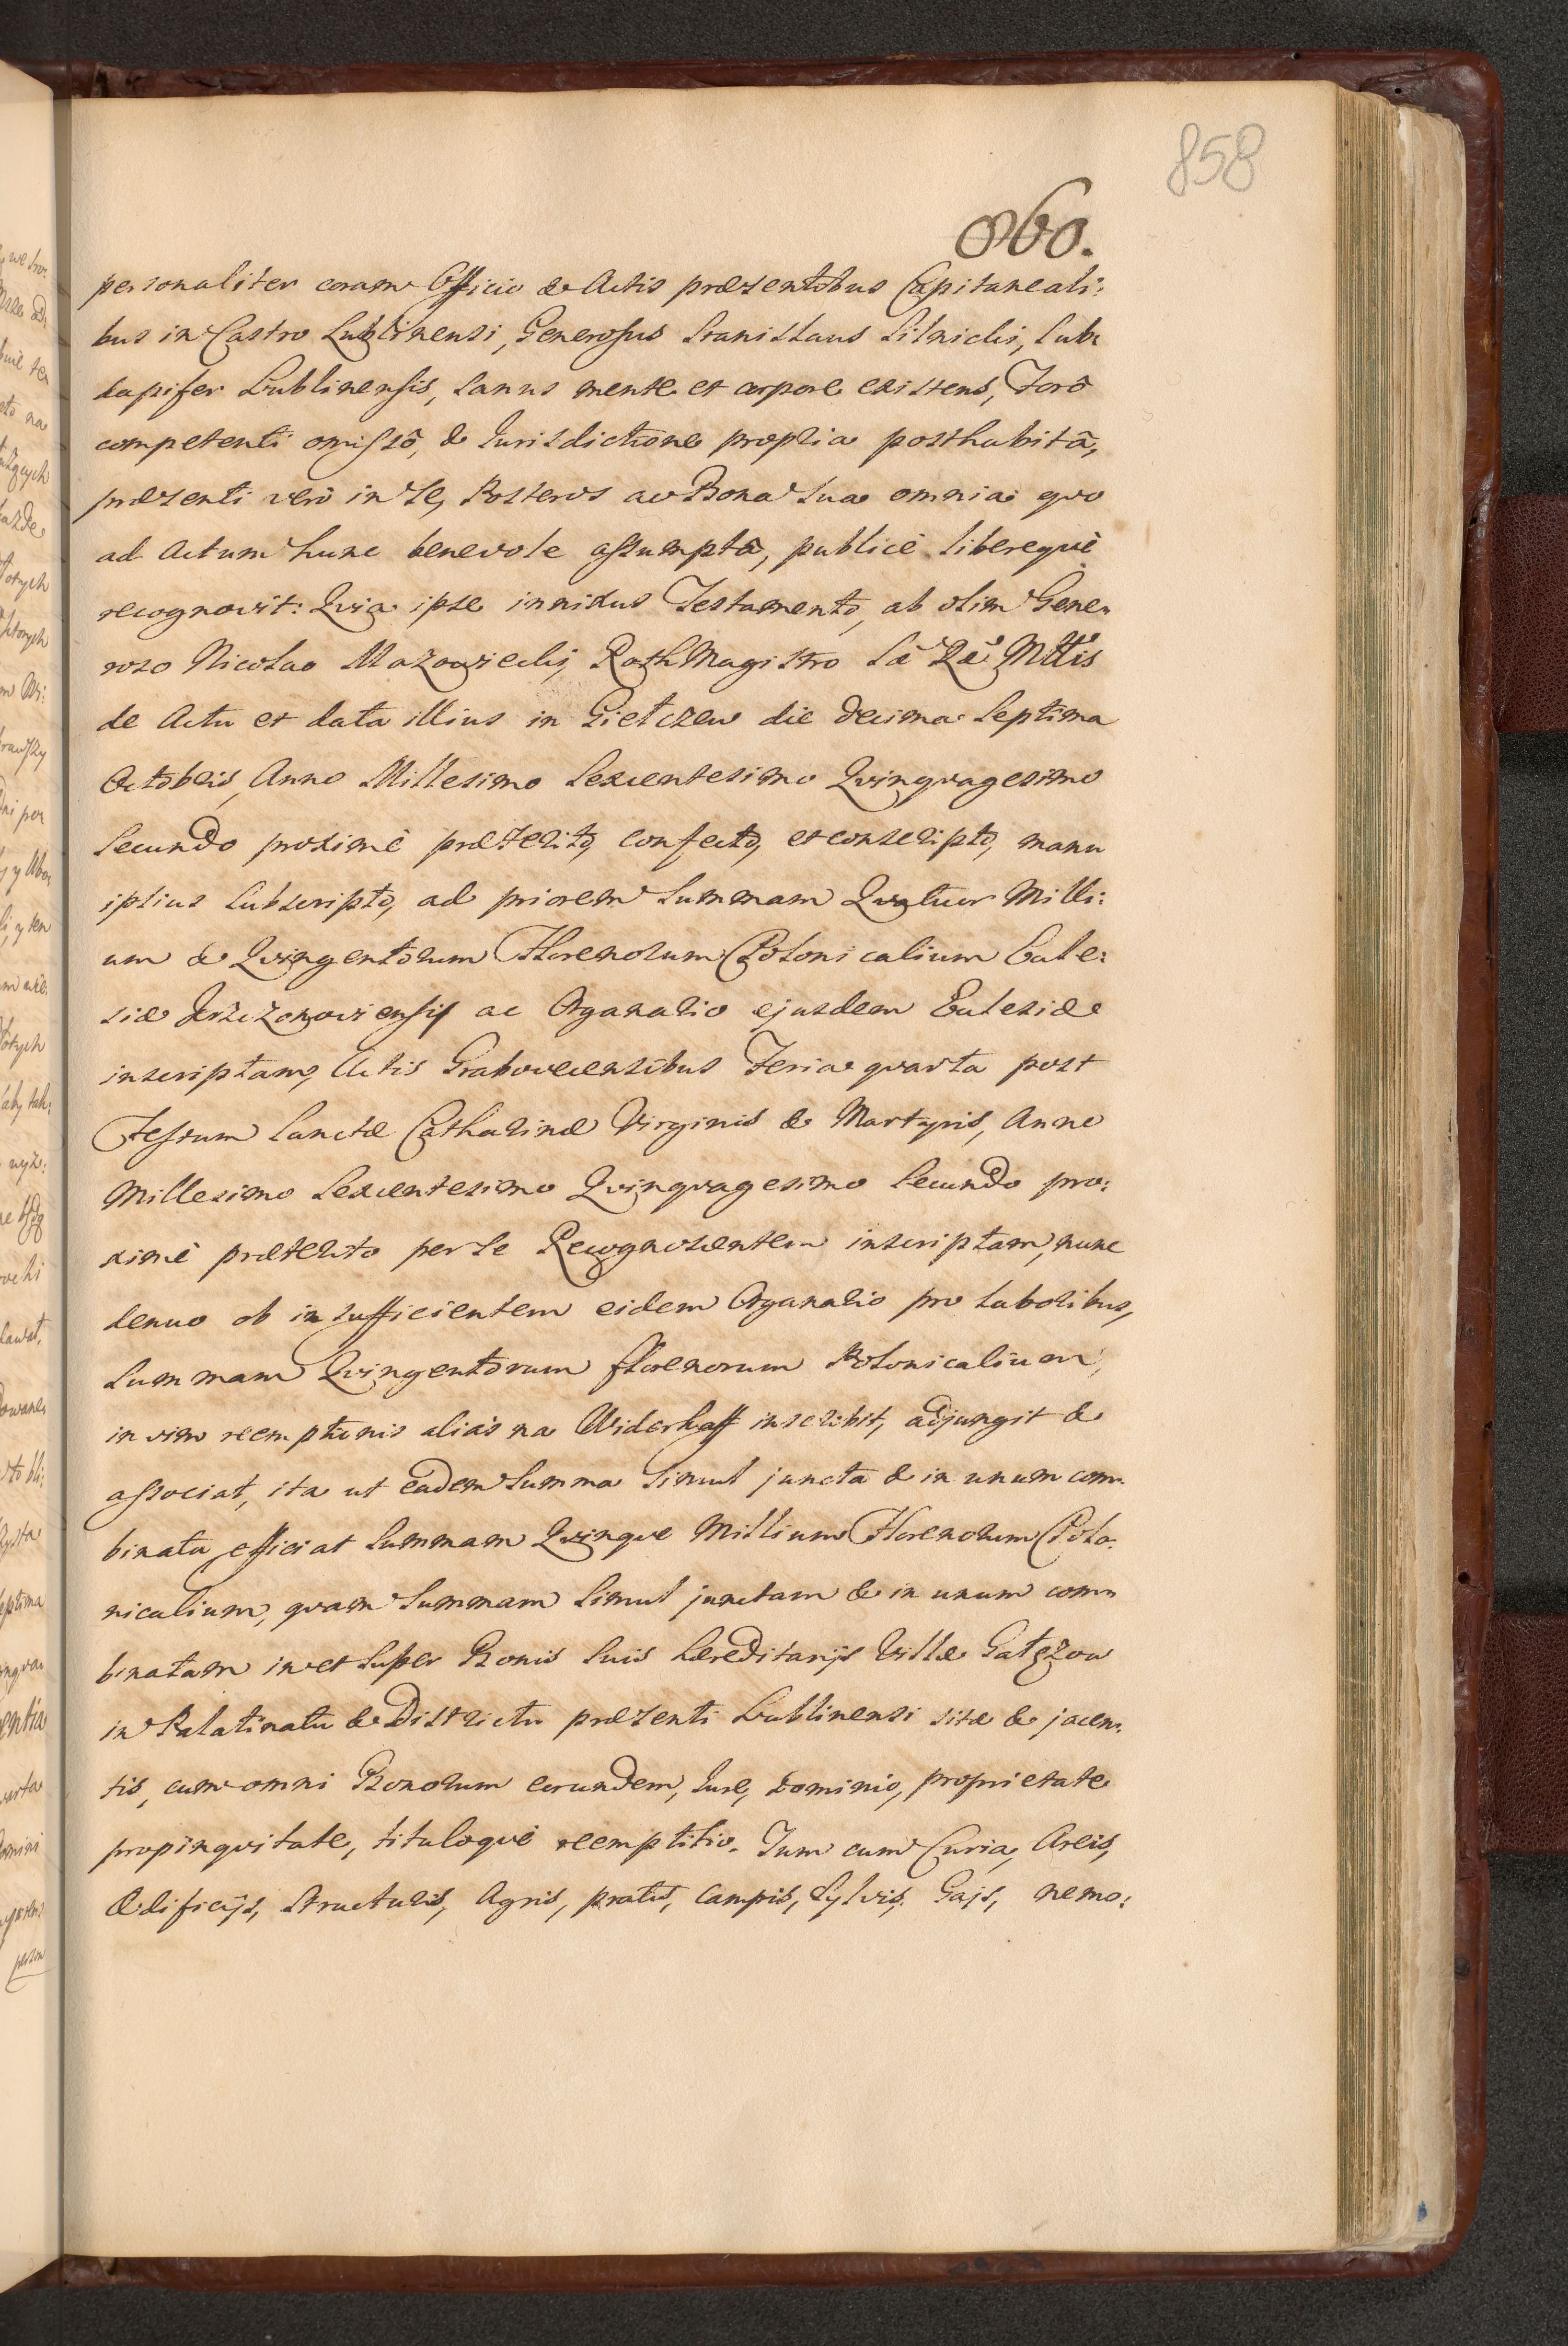 858
860.
personaliter coram Officio & Actis præsentibus Capitaneali:
bus in Castro Lublinensi, Generosus Stanislaus Silnicki, Sub:
dapifer Lublinensis, sanus mente et corpore existens, Forô
competenti omissô, & Iurisdictione propria posthabitâ,
præsenti verò in se, Posteros ac Bona sua omnia quo
ad Actum hunc benevole assumptâ, publicè libereque
recognovit: Qvia ipse innixus Testamento, ab olim Gene:
roso Nicolao Mazowiecki, RothMagistro Sæ Ræ Mttis
de Actu et data illius in Giełczew die decima septima
Octobris, Anno Millesimo Sexcentesimo Qvinqvagesimo
secundo proximè præterito, confecto, et conscripto, manu
ipsius subscripto, ad priorem Summam Qvatuor Milli:
um & Qvingentorum Florenorum Polonicalium Eccle:
siæ Krzczonoviensis ac Organario ejusdem Ecclesiæ
inscriptam, Actis Grabovecensibus Feria qvarta post
Festum Sanctæ Catharinæ Virginis & Martyris, Anno
Millesimo Sexcentesimo Qvinqvagesimo Secundo pro:
ximè præterito per se Recognoscentem inscriptam, nunc
denuo ob insufficientem eidem Organario pro laboribus,
Summam Qvingentorum florenorum Polonicalium,
in vim reemptionis aliàs na Widerkaff inscribit, adjungit &
associat, ita ut eadem Summa simul juncta & in unum com:
binata efficiat Summam Qvinqve Millium Florenorum Polo:
nicalium, qvam Summam simul junctam & in unum com:
binatam in et super Bonis suis hæreditarijs Villæ Gałęzow
in Palatinatu & Districtu præsenti Lublinensi sitæ & jacen:
tis, cum omni Bonorum eorundem, Iure, Dominio, proprietate
propinqvitate, tituloqve reemptitio. Tum cum Curia, Areis,
Ædificijs, Structuris, Agris, pratis, Campis, Sylvis, Gajs, nemo: